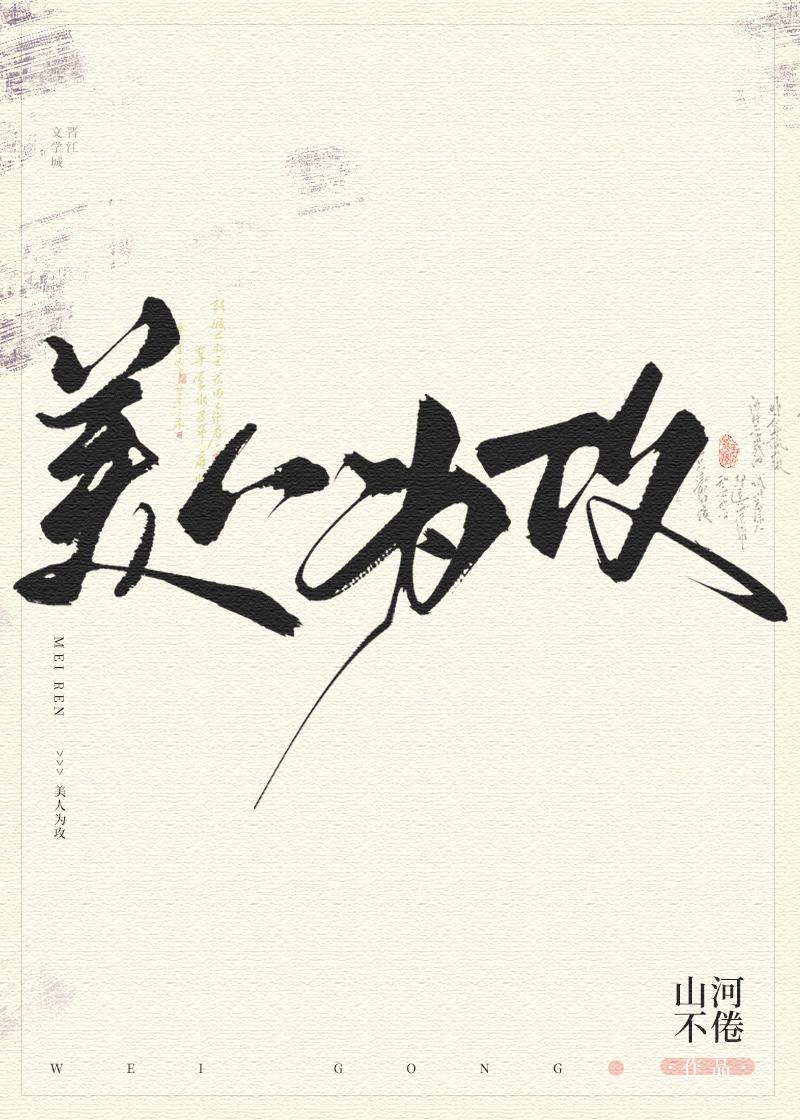 晋江
文学城
美人为攻
MEI REN >>> 美人为攻
山河
不倦
作品
WEI GONG